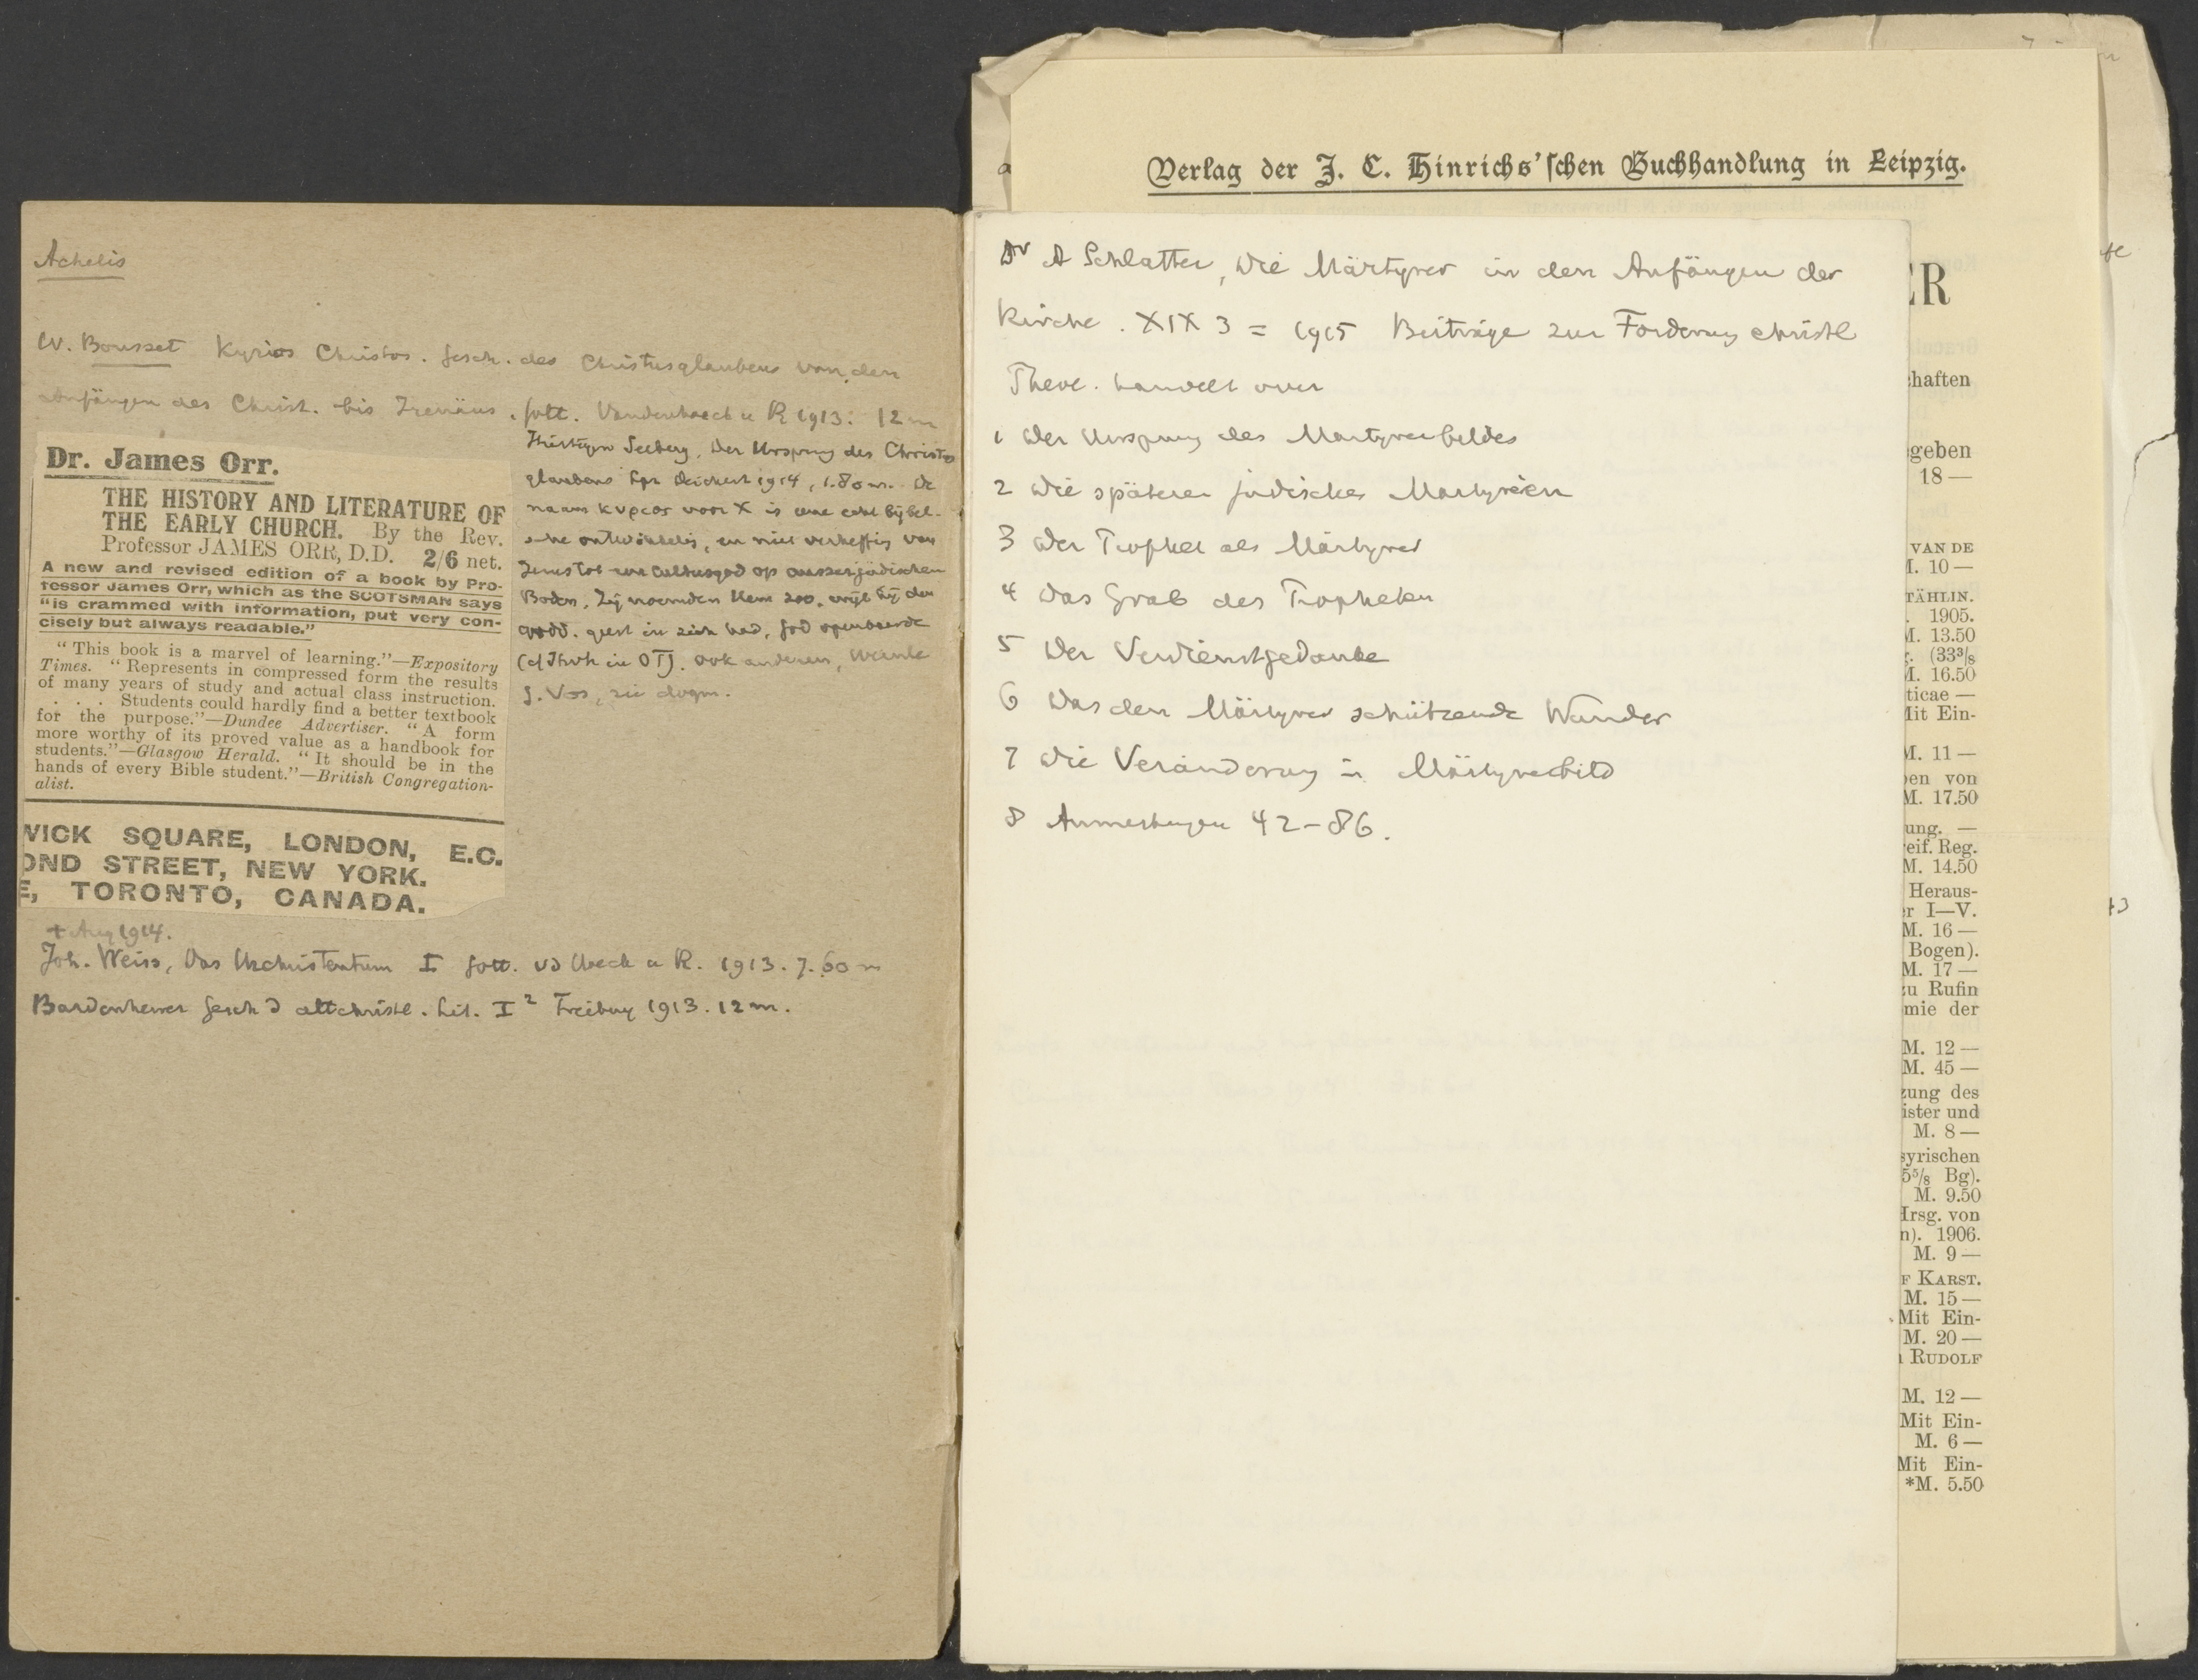 Achelis
W. Bousset Kyrios Christos. Gesch. des Christusglaubens von den
Anfängen des Christ. bis Irenäus. Gött. Vandenhoeck u R 1913. 12 m
Dr. James Orr.
THE HISTORY AND LITERATURE OF
THE EARLY CHURCH. By the Rev.
Professor JAMES ORR, D.D. 2/6 net.
A new and revised edition of a book by Pro-
fessor James Orr, which as the SCOTSMAN says
"is crammed with information, put very con-
cisely but always readable."
"This book is a marvel of learning."—Expository
Times. "Represents in compressed form the results
of many years of study and actual class instruction.
. . . Students could hardly find a better textbook
for the purpose."—Dundee Advertiser. "A form
more worthy of its proved value as a handbook for
students."—Glasgow Herald. "It should be in the
hands of every Bible student."—British Congregation-
alist.
WICK SQUARE, LONDON, E.C.
OND STREET, NEW YORK.
E, TORONTO, CANADA.
Seeberg, Der Ursprung des Christus
glaubens Lpz Deichert 1914, 1.80 m. De
naam κυριος voor X is eene echt bijbel-
sche ontwikkeling, en niet verheffing van
Jezus tot een Cultusgod op ausserjüdischen
Boden. Zij noemden Hem zoo, wijl hij den
godd. geest in zich had, God openbaarde
(cf Jhvh in OT). Ook anderen, Wernle
G. Vos, zie dogm.
+ Aug 1914.
Joh. Weiss, Das Urchristentum I Gött. vd Hoeck u R. 1913. 7.60 m
Bardenhewer Gesch d altchristl. Lit. I² Freiburg 1913. 12 m.
Verlag der J. C. Hinrichs'schen Buchhandlung in Leipzig.
Dr A Schlatter, Die Märtyrer in den Anfängen der
Kirche. XIX 3 = 1915 Beiträge zur Forderung christl
Theol. handelt over
1 Der Ursprung des Martyrerbildes
2 Die späteren jüdischen Martyrien
3 Der Prophet als Märtyrer
4 Das Grab des Propheten
5 Der Verdienstgedanke
6 Das den Märtyrer schützende Wunder
7 Die Veränderung in Märtyrerbild
8 Anmerkungen 42-86.
ER
haften
geben
18 —
VAN DE
M. 10 —
TÄHLIN.
1905.
M. 13.50
(33³/₈
M. 16.50
ticae —
Mit Ein-
M. 11 —
en von
M. 17.50
ung. —
eif. Reg.
M. 14.50
Heraus-
r I—V.
M. 16 —
Bogen).
M. 17 —
zu Rufin
mie der
M. 12 —
M. 45 —
zung des
ister und
M. 8 —
syrischen
5⁵/₈ Bg).
M. 9.50
Hrsg. von
n). 1906.
M. 9 —
F KARST.
M. 15 —
Mit Ein-
M. 20 —
RUDOLF
M. 12 —
Mit Ein-
M. 6 —
Mit Ein-
*M. 5.50